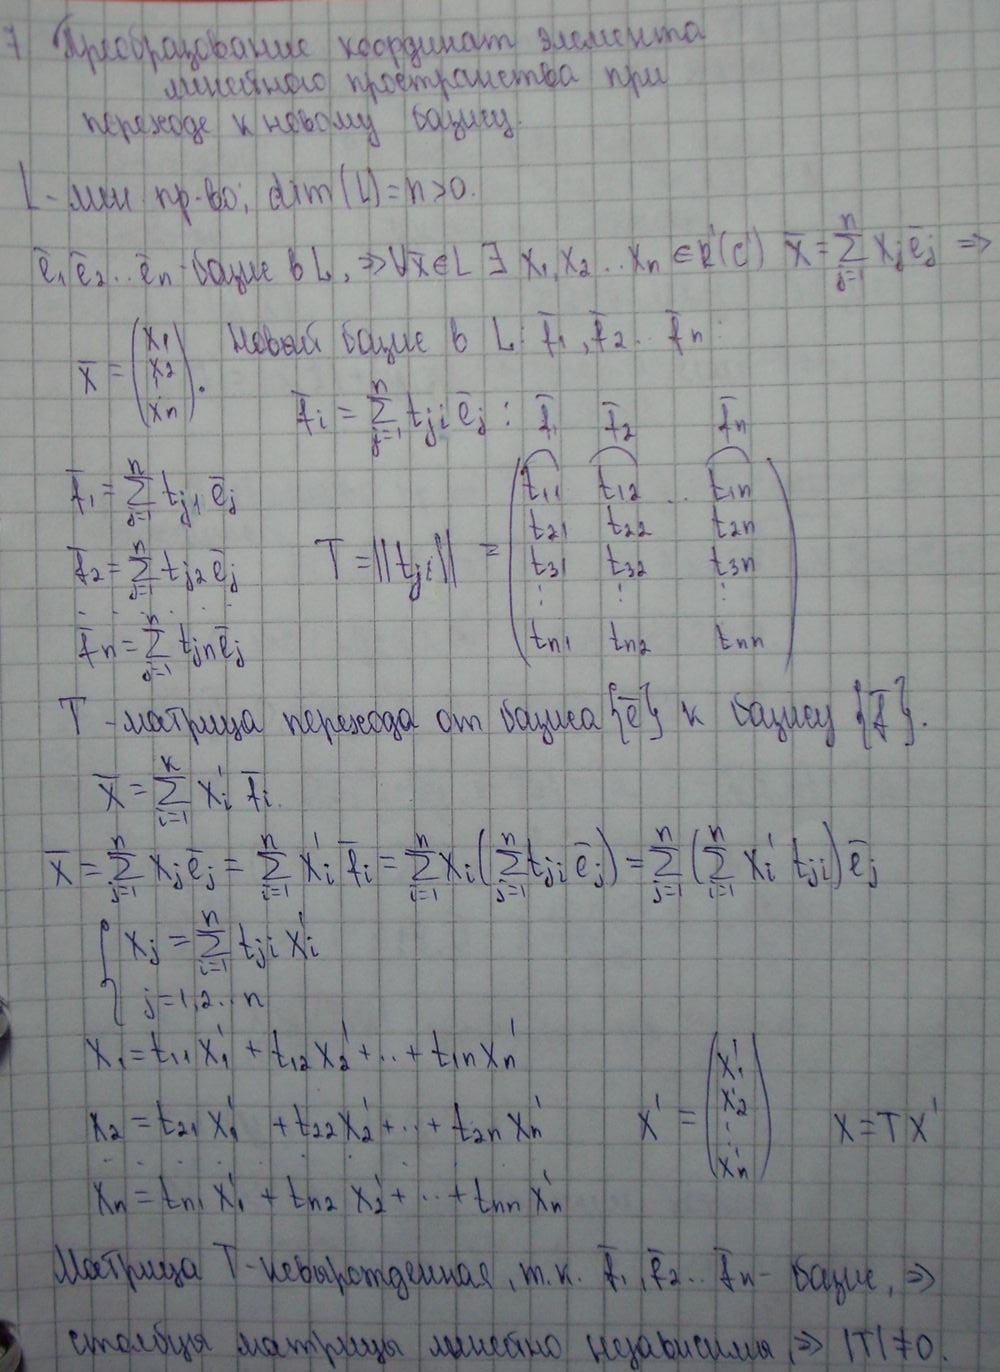 7 Преобразование координат элемента
линейного пространства при
переходе к новому базису.
L - лин пр-во; dim(L)=n>0.
ē₁ ē₂ ... ēₙ - базис в L, ⇒ ∀x̄∈L ∃ x₁, x₂ ... xₙ ∈ R(C) x̄ = ∑ⱼ₌₁ⁿ xⱼ ēⱼ ⇒
x̄ = (x₁ x₂ ⋮ xₙ). Новый базис в L: f̄₁, f̄₂ .. f̄ₙ:
f̄ᵢ = ∑ⱼ₌₁ⁿ tⱼᵢ ēⱼ : f̄₁ f̄₂ f̄ₙ
f̄₁ = ∑ⱼ₌₁ⁿ tⱼ₁ ēⱼ
f̄₂ = ∑ⱼ₌₁ⁿ tⱼ₂ ēⱼ
. . . . . . .
f̄ₙ = ∑ⱼ₌₁ⁿ tⱼₙ ēⱼ
T = ||tⱼᵢ|| =
t₁₁ t₁₂ .. t₁ₙ
t₂₁ t₂₂ t₂ₙ
t₃₁ t₃₂ t₃ₙ
⋮ ⋮ ⋮
tₙ₁ tₙ₂ tₙₙ
T - матрица перехода от базиса {ē} к базису {f̄}.
x̄ = ∑ᵢ₌₁ᵏ xᵢ' f̄ᵢ.
x̄ = ∑ⱼ₌₁ⁿ xⱼ ēⱼ = ∑ᵢ₌₁ⁿ xᵢ' f̄ᵢ = ∑ᵢ₌₁ⁿ xᵢ (∑ⱼ₌₁ⁿ tⱼᵢ ēⱼ) = ∑ⱼ₌₁ⁿ (∑ᵢ₌₁ⁿ xᵢ' tⱼᵢ) ēⱼ
{ xⱼ = ∑ᵢ₌₁ⁿ tⱼᵢ xᵢ'
j = 1,2.. n
x₁ = t₁₁ x₁' + t₁₂ x₂' + ... + t₁ₙ xₙ'
x₂ = t₂₁ x₁' + t₂₂ x₂' + ... + t₂ₙ xₙ'
. . . . . . . . .
xₙ = tₙ₁ x₁' + tₙ₂ x₂' + ... + tₙₙ xₙ'
x' = (x₁' x₂' ⋮ xₙ') x = T x'
Матрица T - невырожденная, т.к. f̄₁, f̄₂ .. f̄ₙ - базис, ⇒
столбцы матрицы линейно независимы, ⇒ |T| ≠ 0.